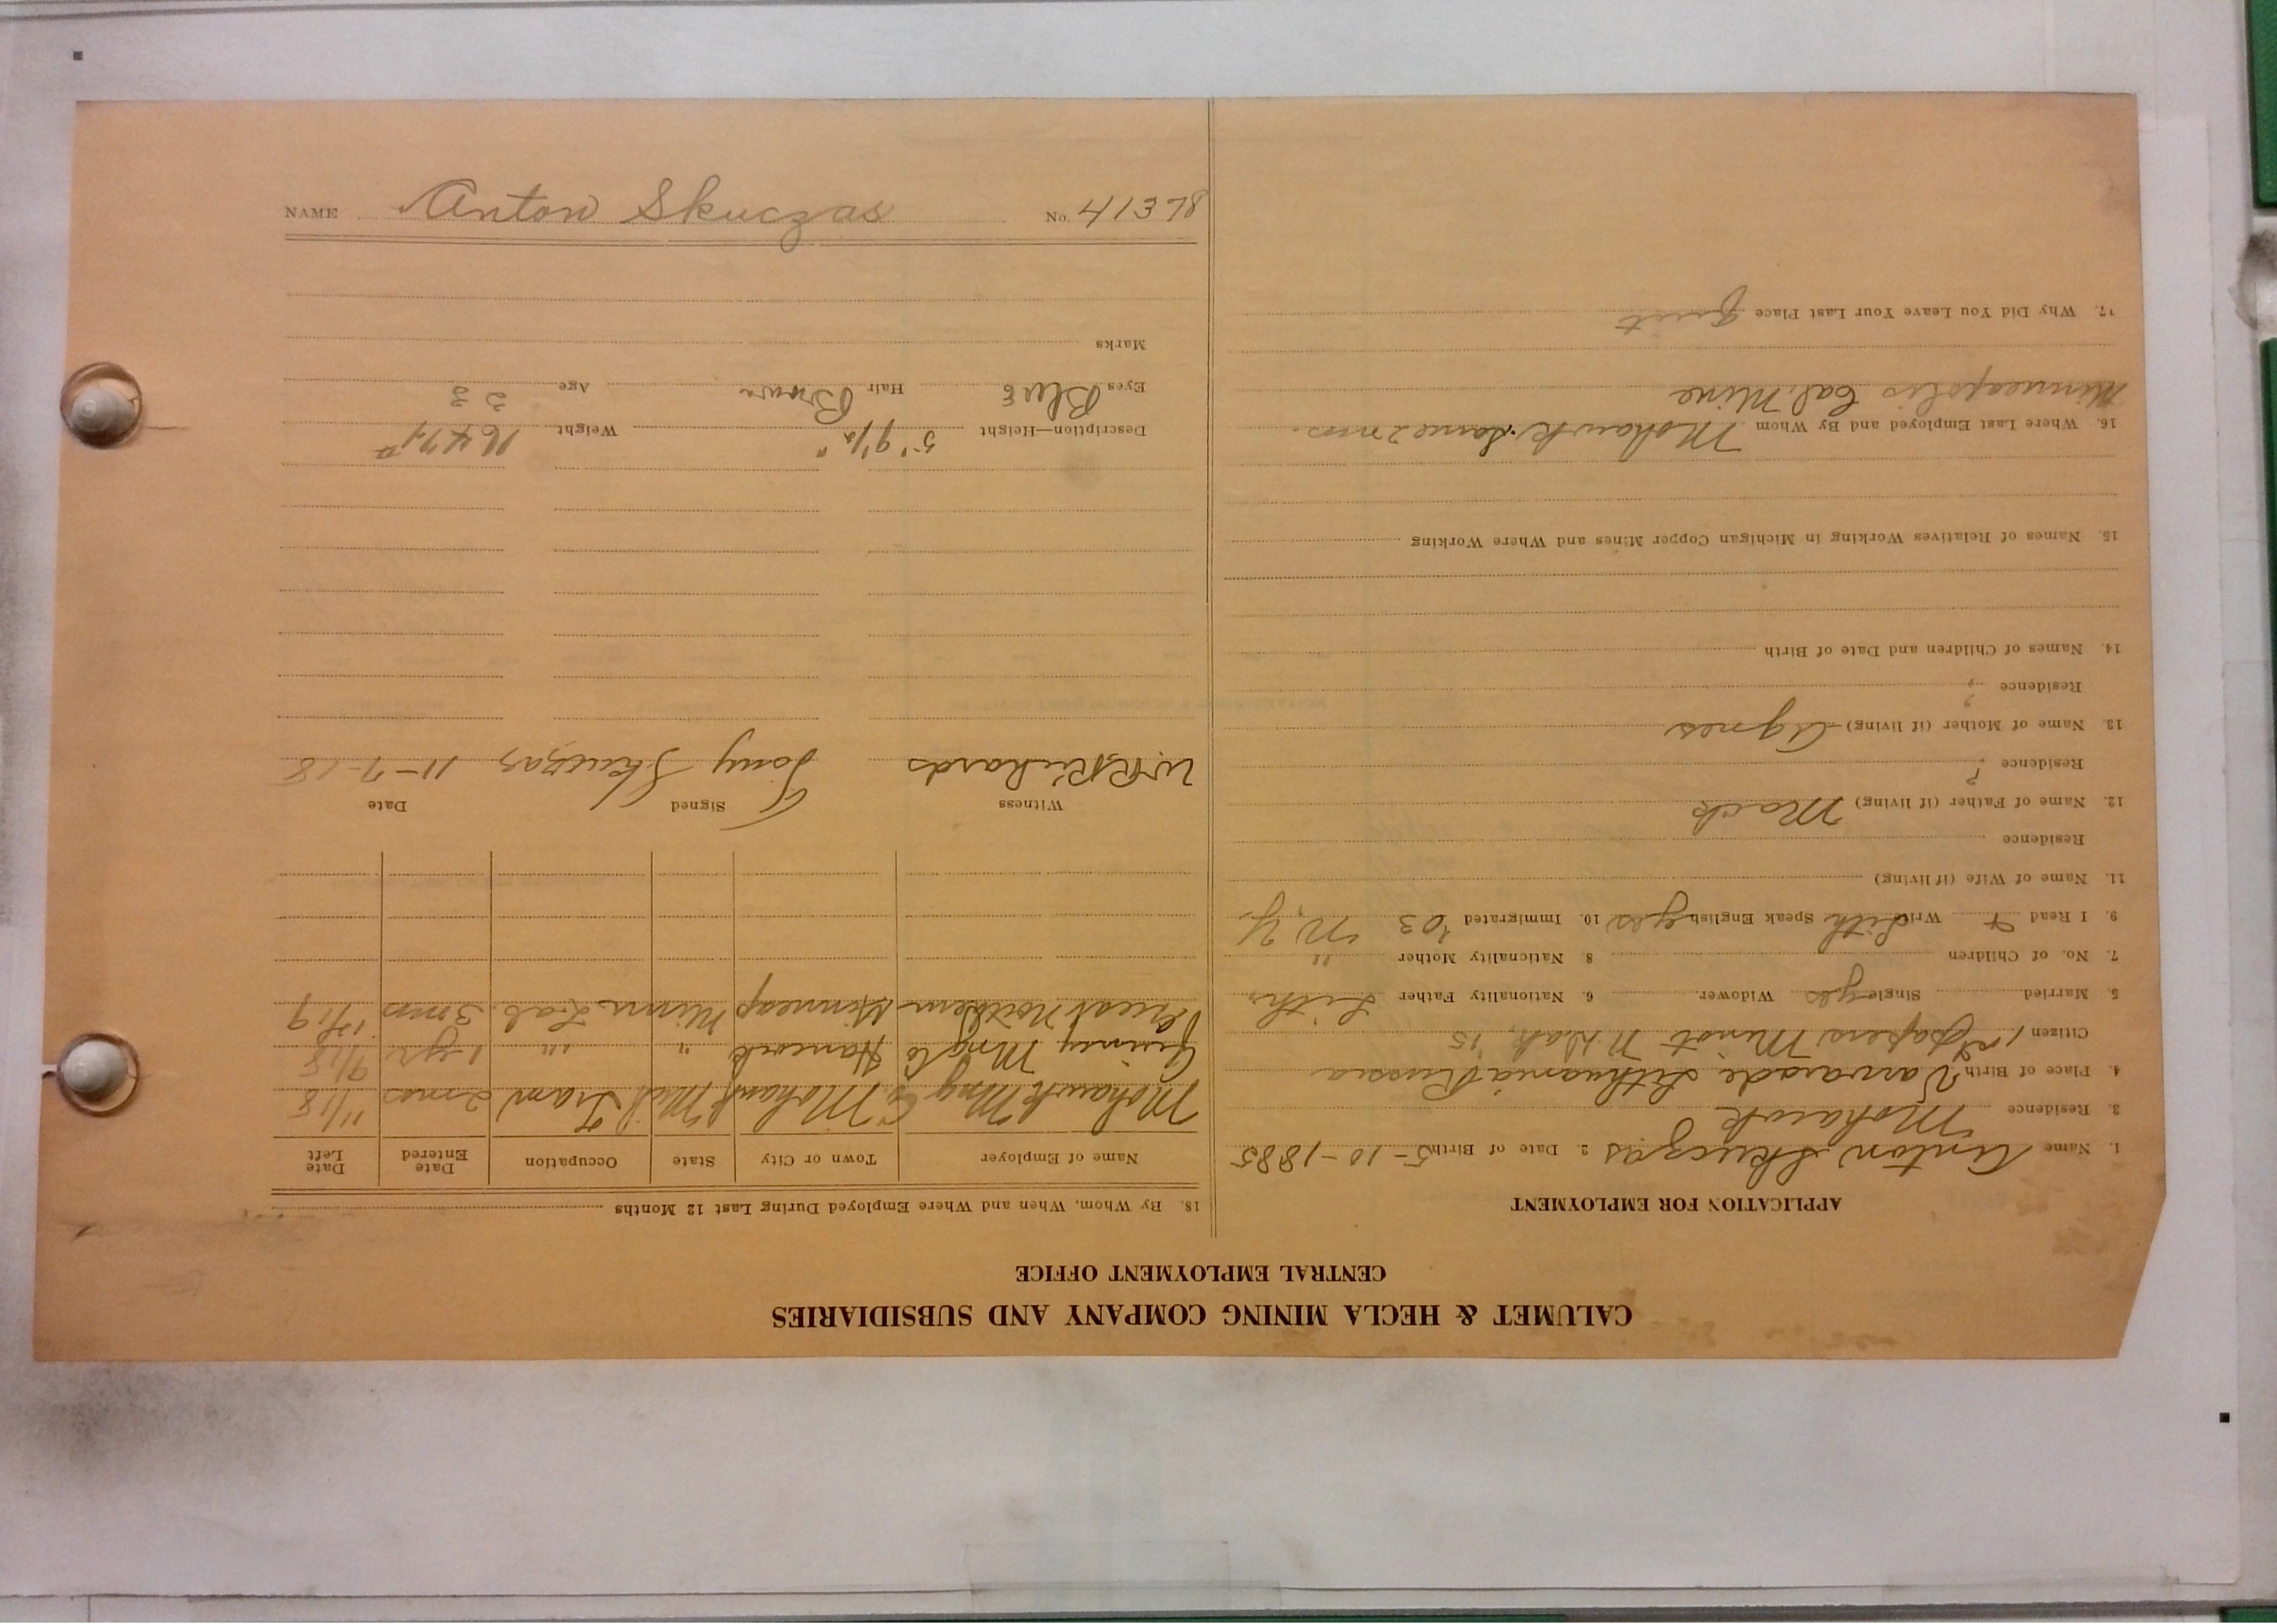 CALUMET & HECLA MINING COMPANY AND SUBSIDIARIES
CENTRAL EMPLOYMENT OFFICE
APPLICATION FOR EMPLOYMENT
1. Name Anton Skuczas 2. Date of Birth 5-10-1885
3. Residence Mohawk
4. Place of Birth Lithuania Russia
Citizen 1st papers Minot N. Dak. '15
5. Married Single yes Widower 6. Nationality Father Lith.
7. No. of Children 8. Nationality Mother "
9. I Read & Write Lith Speak English yes 10. Immigrated '03 N.Y.
11. Name of Wife (if living)
Residence
12. Name of Father (if living) Mack
Residence ?
13. Name of Mother (if living) Agnes
Residence ?
14. Names of Children and Date of Birth
15. Names of Relatives Working in Michigan Copper Mines and Where Working
16. Where Last Employed and By Whom Mohawk. Same 2 mos.
Minneapolis Cal. Mine
17. Why Did You Leave Your Last Place Quit
18. By Whom, When and Where Employed During Last 12 Months
Name of Employer Town or City State Occupation Date Entered Date Left
Mohawk Mng Co. Mohawk Mich Tram 2 mos 11/18
Quincy Mng Co Hancock " " 1 yr 9/18
Great Northern Minneap Minn Lab. 3 mos
Witness Signed Date
W.R. Richards Tony Skuczas 11-7-18
Description—Height 5' 9 1/2" Weight
Eyes Blue Hair Brown Age 33
Marks
NAME Anton Skuczas No. 41378